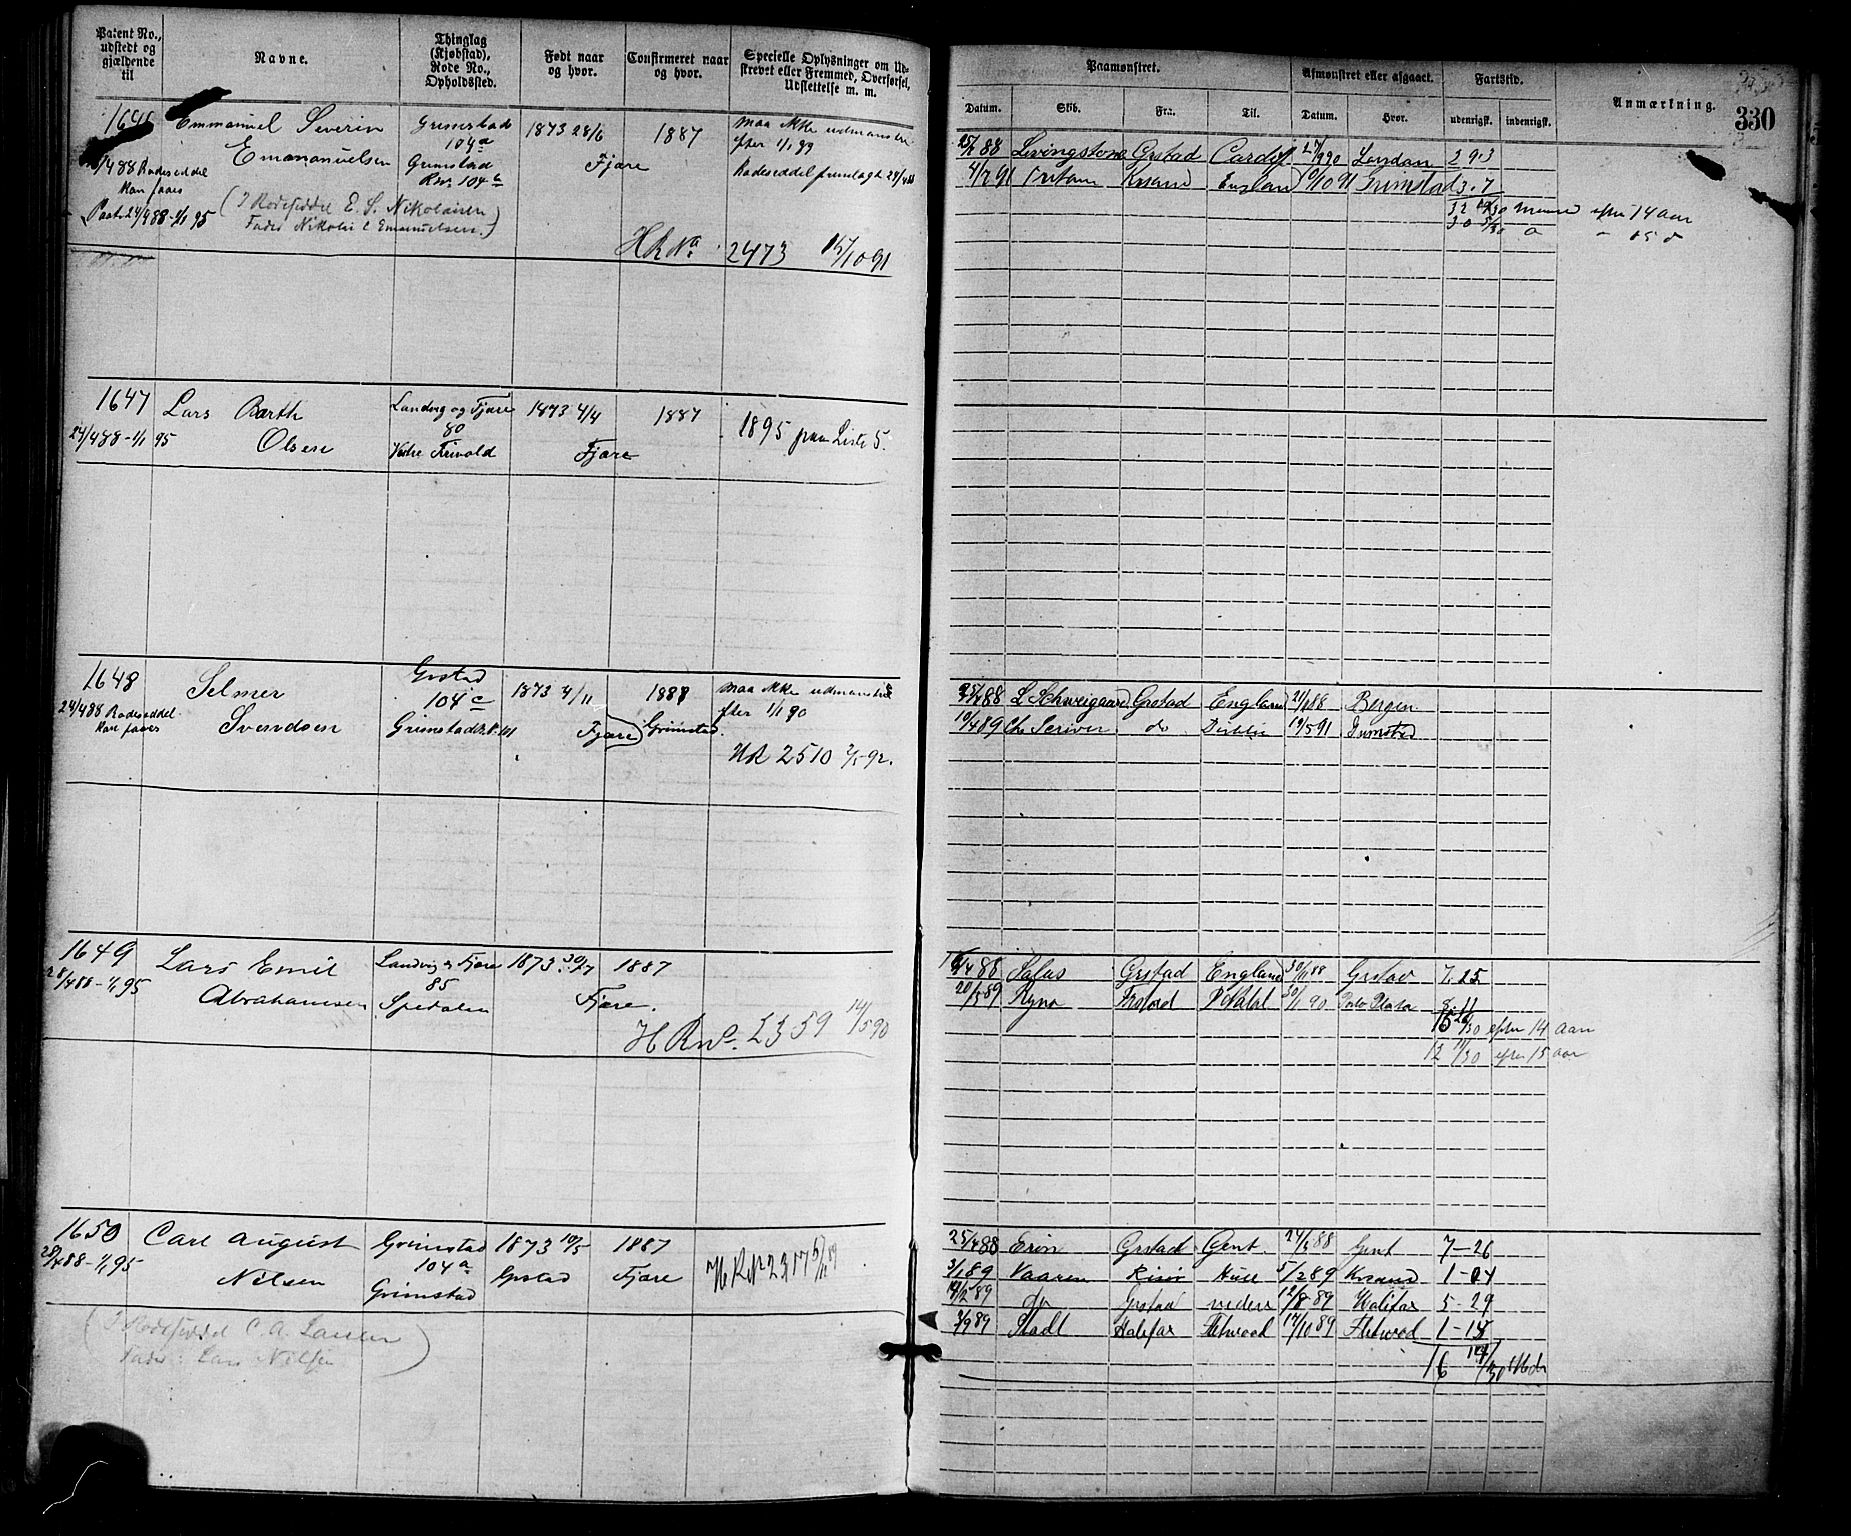 Patent No., udstedt og gjældende til
Navne.
Thinglag (Kjøbstad), Rode No., Opholdssted.
Født naar og hvor.
Confirmeret naar og hvor.
Specielle Oplysninger om Udskrevet eller Fremmed, Overførsel, Udslettelse m. m.
Paamønstret.
Afmønstret eller afgaaet.
Fartstid.
Anmærkning.
330
Datum.
Skib.
Fra.
Til.
Datum.
Hvor.
udenrigsk.
indenrigsk.
Emmanuel Severin
Emananuelsen
Grimstad
104a
Grimstad
1873 28/6
Fjære
1887
maa ikke udmønstres
efter 1/1 89
Rodeseddel fremlagt 28/4 88
/4 88 Rodeseddel
kan faaes
24/4 88-1/1 95
(I Rodeseddel E. S. Nikolaisen
Fader Nikolai E Emanuelsen.)
H R No. 2473 15/10 91
25/4 88 Livingstone Grstad Cardif 27/9 90 London 29.3
4/7 91 Krsand England 10/10 91 Grimstad 3.7
efter 14 aar
15
1647
24/4 88-1/1 95
Lars Barth
Olsen
Landvig og Fjære
80
Vestre Frivold
1873 4/4
Fjære
1887
1895 paa Liste 5.
1648
24/4 88 Rodeseddel
kan faaes
Selmer
Svendsen
Grstad
104c
Grimstad
1873 4/11
Fjære
1888
Grimstad
maa ikke udmønstres
efter 1/1 90
HR 2510 2/5 92.
25/4 88 L Schweigaard Grstad England 21/1 88 Bergen
10/4 89 Chr Scriver do Dublin 19/5 91 Grimstad
1649
28/4 88-1/1 95
Lars Emil
Abrahamsen
Landvig & Fjære
85
Spedalen
1873 30/7
Fjære
1887
H R No. 2359 14/5 90
/4 88 Grstad England 30/11 88 Grstad 7.25
20/5 89 30/1 90 8.11
15 26/30 efter 14 aar
12 11/30 efter 15 aar
1650
28/4 88-1/1 95
Carl August
Nilsen
Grimstad
104a
Grimstad
1873 10/5
Grstad
1887
Fjære
H R No 2317 5/11 89
(I Rodeseddel C. A. Larsen
Fader: Lars Nilsen)
25/4 88 Erin Grstad Gent. 24/ 88 Gent 7-26
3/1 89 Vaaren Risør Hull 5/2 89 Krsand 1-04
14/2 89 do Grstad 12/8 89 Halifax 5-29
2/9 89 Stadt Halifax Fletwood 17/10 89 Fletwod 1-15
16 14/30 Mdr